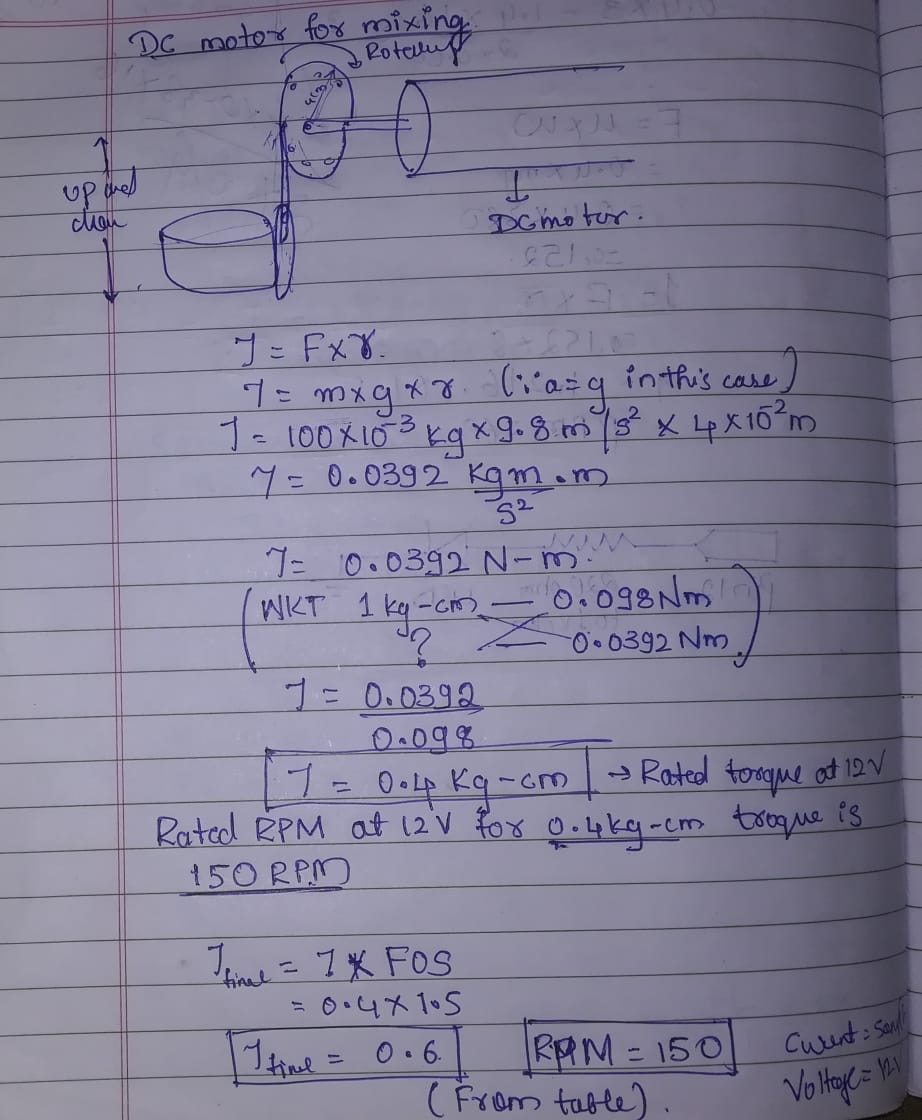 DC motor for mixing
Rotary
4cm
up and
down
DC motor.
T = F x r.
T = m x g x r (∵ a = g in this case)
T = 100 x 10^-3 kg x 9.8 m/s² x 4 x 10^-2 m
T = 0.0392 kgm . m
s²
T = 0.0392 N-m.
(WKT 1 kg-cm — 0.098 Nm
? — 0.0392 Nm.)
T = 0.0392
0.098
T = 0.4 Kg-cm → Rated torque at 12V
Rated RPM at 12V for 0.4kg-cm troque is
150 RPM
T final = T x FOS
= 0.4 x 1.5
T final = 0.6
RPM = 150
(From table).
Current =
Voltage = 12V